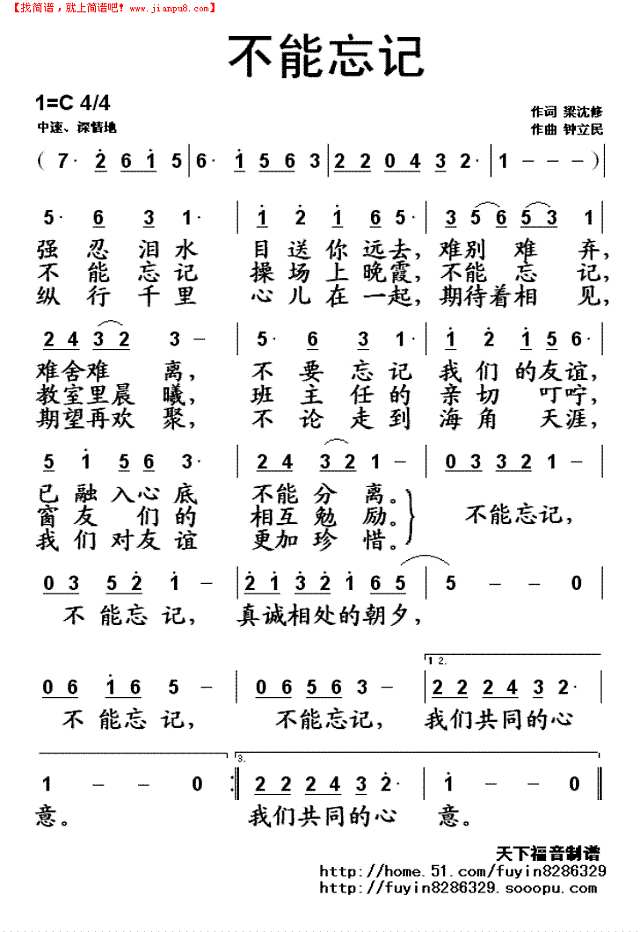 【找简谱，就上简谱吧！www.jianpu8.com】
不能忘记
1=C 4/4
作词 梁沈修
中速、深情地
作曲 钟立民
( 7· 2 6 1 5 | 6· 1 5 6 3 | 2 2 0 4 3 2· | 1 - - - )
5· 6 3 1· | 1 2 1 6 5 | 3 5 6 5 3 1
强 忍 泪 水 目 送 你 远去，难别 难 弃，
不 能 忘 记 操 场 上 晚霞，不能 忘 记，
纵 行 千 里 心 儿 在 一起，期待着相 见，
2 4 3 2 3 - | 5· 6 3 1· | 1 2 1 5 6·
难舍难 离， 不 要 忘记 我 们 的友谊，
教室里晨 曦， 班 主 任的 亲 切 叮咛，
期望再欢 聚， 不 论 走到 海 角 天涯，
5 1 5 6 3· | 2 4 3 2 1 - | 0 3 3 2 1 -
已 融 入心 底 不能 分 离。
窗 友 们 的 相互 勉 励。 不能忘记，
我 们 对友 谊 更加 珍 惜。
0 3 5 2 1 - | 2 1 3 2 1 6 5 | 5 - - 0
不 能忘 记， 真诚相处的朝夕，
1 2.
0 6 1 6 5 - | 0 6 5 6 3 - | 2 2 2 4 3 2·
不 能忘 记， 不能忘记， 我们共同的心
3.
1 - - 0 :‖ 2 2 2 4 3 2· | 1 - - 0 ‖
意。 我们共同的心 意。
天下福音制谱
http://home.51.com/fuyin8286329
http://fuyin8286329.sooopu.com